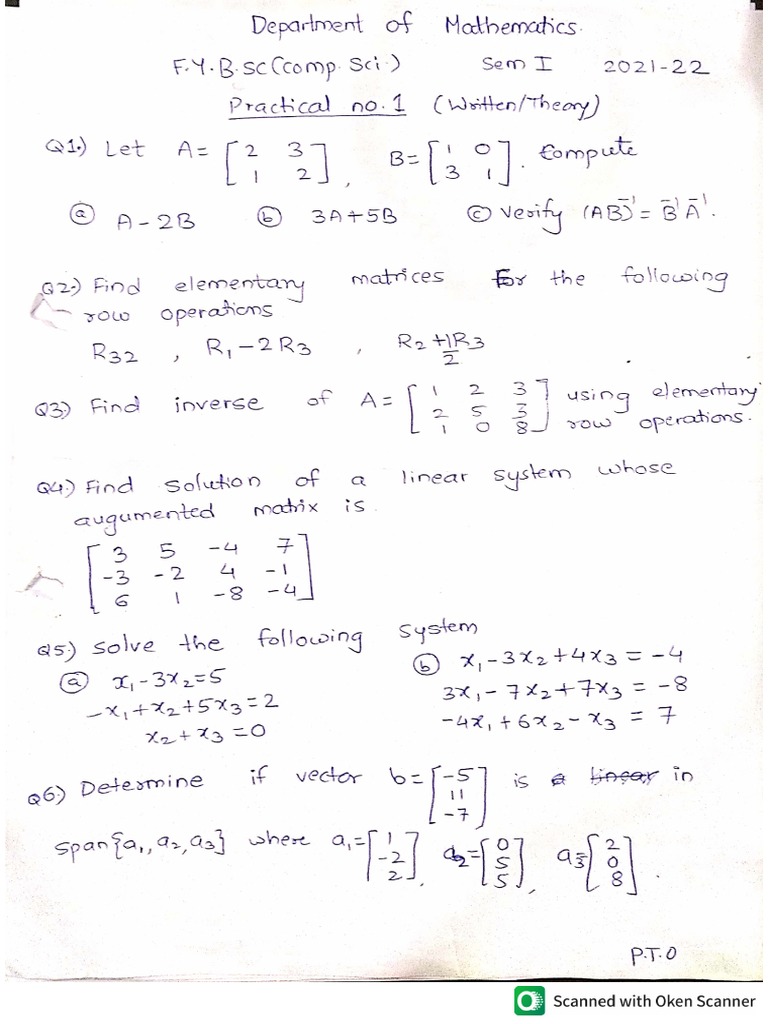 Department of Mathematics.
F.Y.B.sc (comp. Sci.) Sem I 2021-22
Practical no. 1 (Written/Theory)
Q1.) Let A = [2 3; 1 2], B = [1 0; 3 1]. Compute
(a) A-2B (b) 3A+5B (c) Verify (AB)⁻¹ = B⁻¹A⁻¹.
Q2.) Find elementary matrices for the following
row operations
R32 , R1-2R3 , R2+1/2R3
Q3.) Find inverse of A = [1 2 3; 2 5 3; 1 0 8] using elementary
row operations.
Q4.) Find solution of a linear system whose
augumented matrix is.
[3 5 -4 7
-3 -2 4 -1
6 1 -8 -4]
Q5.) Solve the following system
(a) x1-3x2=5 (b) x1-3x2+4x3 = -4
-x1+x2+5x3=2 3x1-7x2+7x3 = -8
x2+x3=0 -4x1+6x2-x3 = 7
Q6.) Determine if vector b = [-5; 11; -7] is a linear in
span{a1, a2, a3} where a1=[1; -2; 2], a2=[0; 5; 5], a3=[2; 0; 8].
P.T.O
Scanned with Oken Scanner